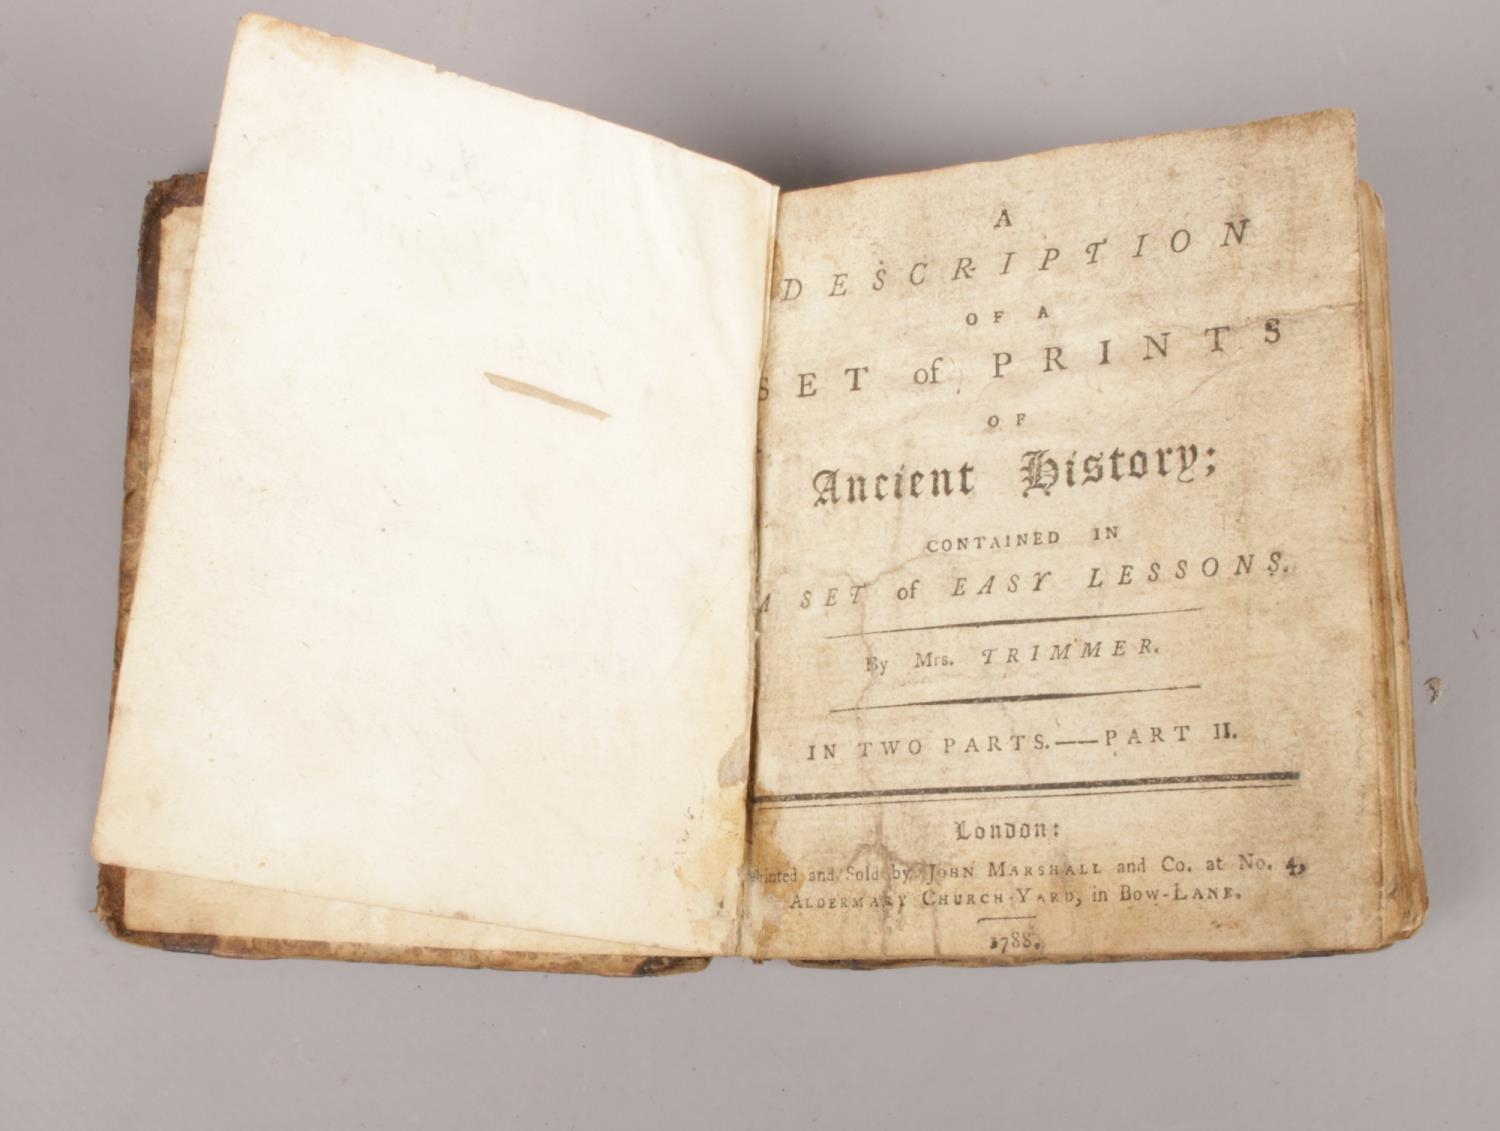 A
DESCRIPTION
OF A
SET of PRINTS
OF
Ancient History;
CONTAINED IN
A SET of EASY LESSONS.
By Mrs. TRIMMER.
IN TWO PARTS.——PART II.
London:
Printed and Sold by JOHN MARSHALL and Co. at No. 4,
ALDERMARY CHURCH-YARD, in BOW-LANE.
1788.